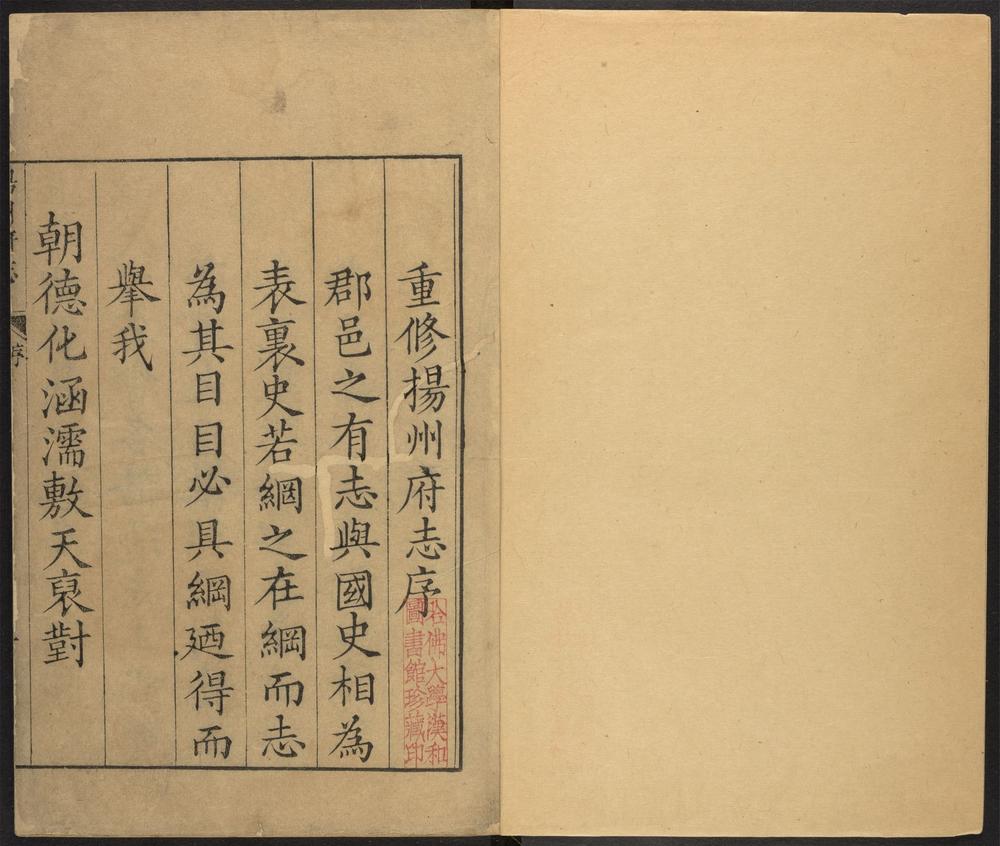 重修揚州府志序
郡邑之有志與國史相為
表裏史若綱之在綱而志
為其目目必具綱廼得而
舉我
朝德化涵濡敷天裒對
序
哈佛大學漢和
圖書館珍藏印